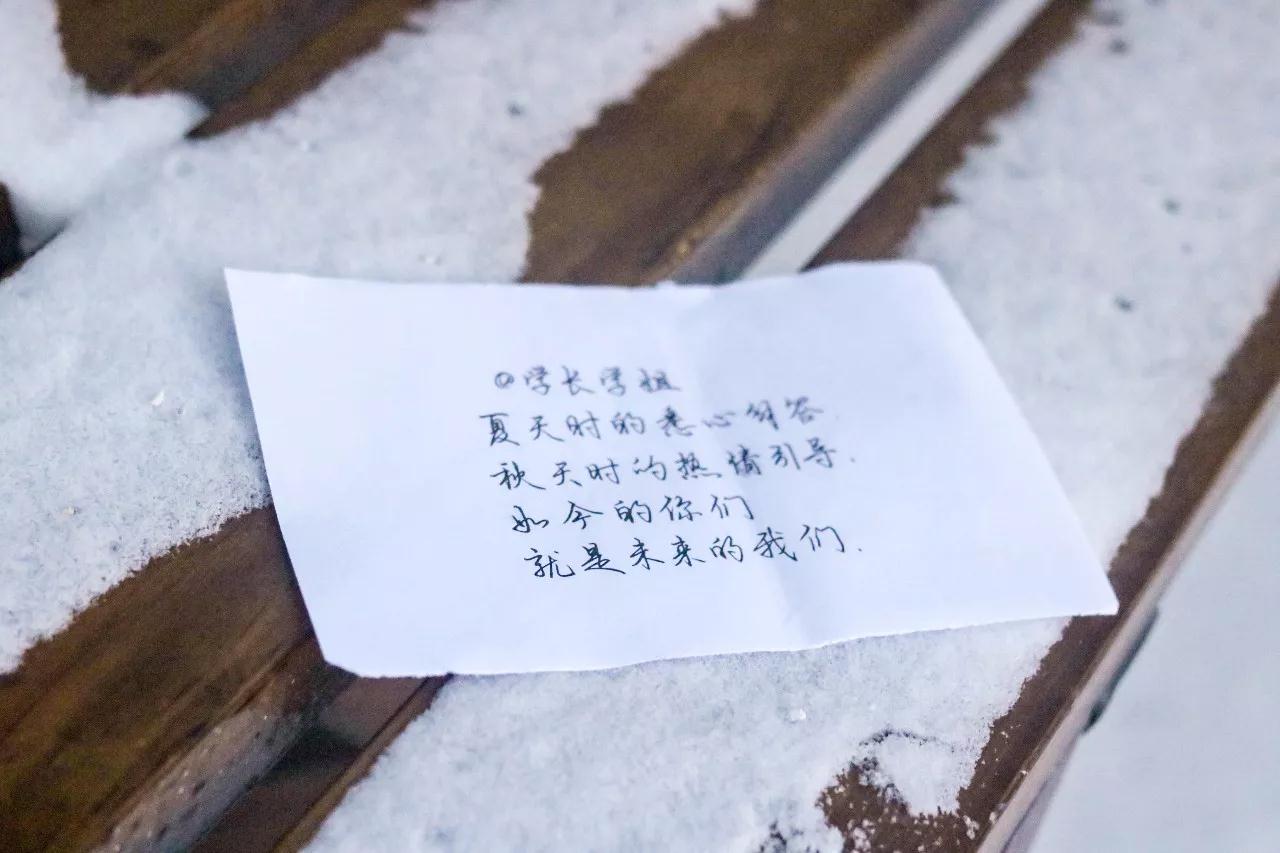 @学长学姐
夏天时的悉心解答.
秋天时的热情引导.
如今的你们
就是未来的我们.